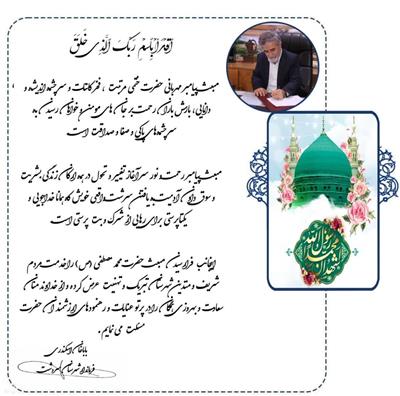 اقرا باسم ربک الذی خلق
مبعث پیامبر مهربانی حضرت ختمی مرتبت ، فخر کائنات و سرچشمه اندیشه و
دانایی، بارش باران رحمت بر جان های مومن و خواهان رسیدن به
سرچشمه های پاکی و صفا و صداقت است
مبعث پیامبر رحمت و نور سرآغاز تغییر و تحول در همه ارکان زندگی بشریت
و سوق دادن آدمیت به یافتن سرشت واقعی خویش که همانا خداجویی و
یکتاپرستی برای رهایی از شرک و بت پرستی است
اینجانب فرارسیدن مبعث حضرت محمد مصطفی (ص) را خدمت مردم
شریف و متدین شهرستان تبریک و تهنیت عرض کرده و از خداوند منان
سعادت و بهروزی همگان را در پرتو عنایات و رهنمودهای ارزشمند آن حضرت
مسئلت می نمایم.
باباخان اسکندری
فرماندار شهرستان
اشهد ان محمد رسول الله